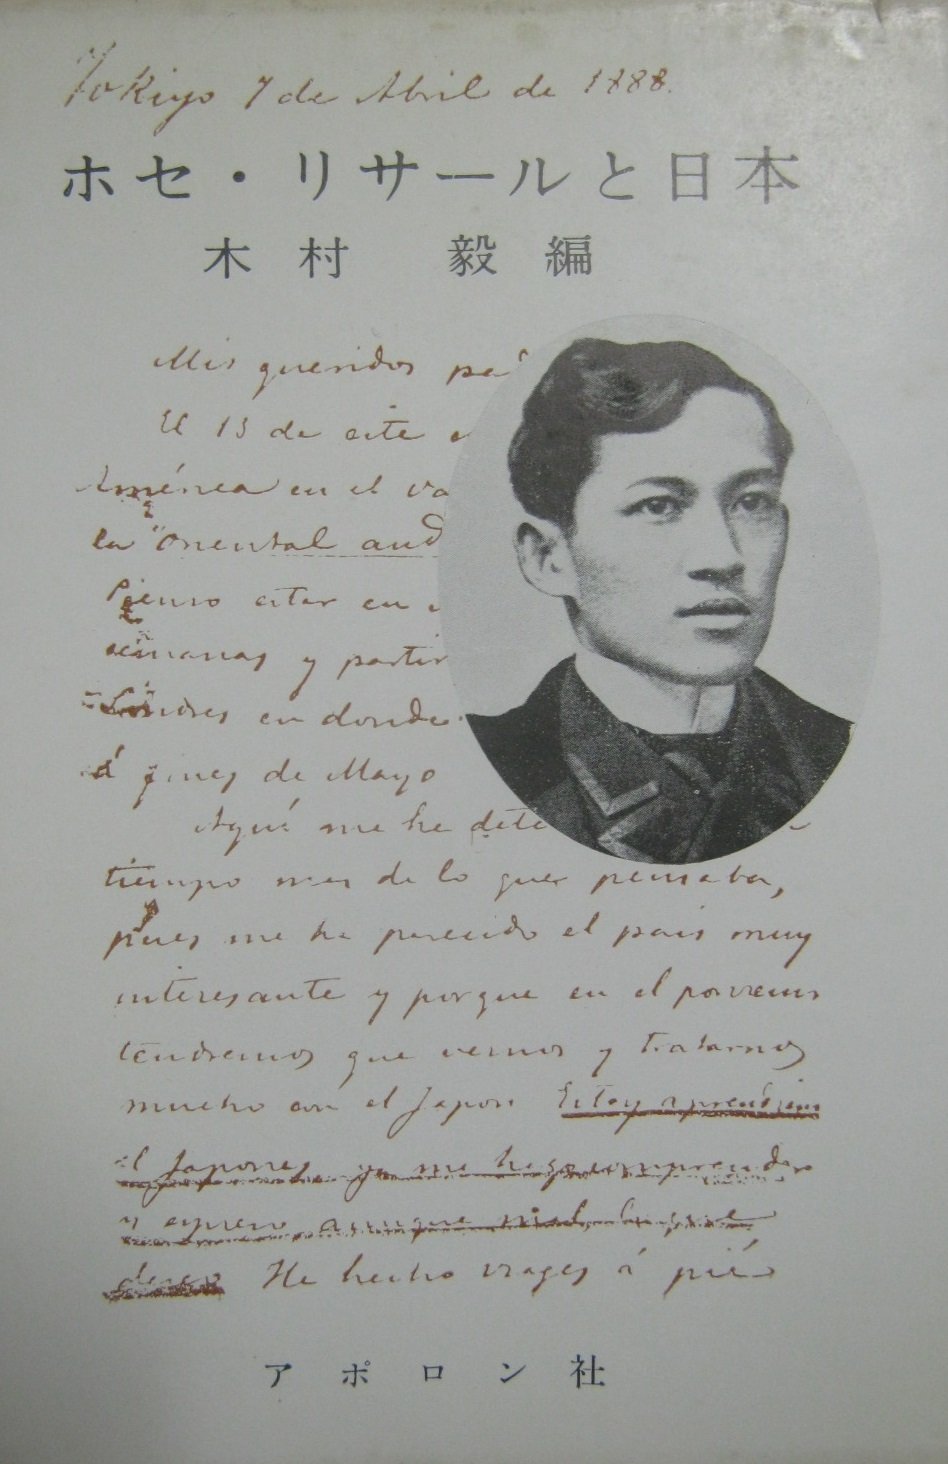 Tokiyo 7 de Abril de 1888.
ホセ・リサールと日本
木村 毅編
Mis queridos pa
El 13 de este
América en el va
la "Oriental and
Pienso estar en
semanas y partir
Londres en donde
á fines de Mayo
Aquí me he dete
tiempo mas de lo que pensaba,
pues me ha parecido el pais muy
interesante y porque en el porvenir
tendremos que vernos y tratarnos
mucho con el Japon Estoy aprendiendo
el Japones, ya me hago comprender
y espreso aunque mal lo que
deseo He hecho viages á pié
アポロン社